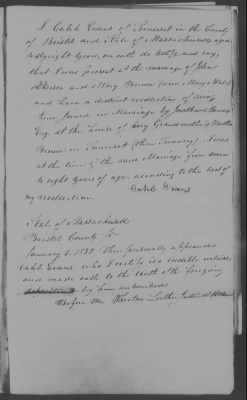 I Caleb Evans of Somerset in the County
of Bristol and State of Massachusetts aged
eight years, on oath do say,
that I was present at the marriage of John
and Mary Brown (now Mary
and have a distinct recollection of seeing
them joined in Marriage by
Esq. at the House of my Grandmother Martha
Brown in Somerset (then January). I was
at the time of the said Marriage from seven
to eight years of age, according to the best of
my recollection.
Caleb Evans
State of Massachusetts
Bristol County Ss
January 6. 1838. Then personally appeared
Caleb Evans who I certify is a credible witness,
and made oath to the truth of the foregoing
by him subscribed
Before me Wheaton Luther Justice of Peace